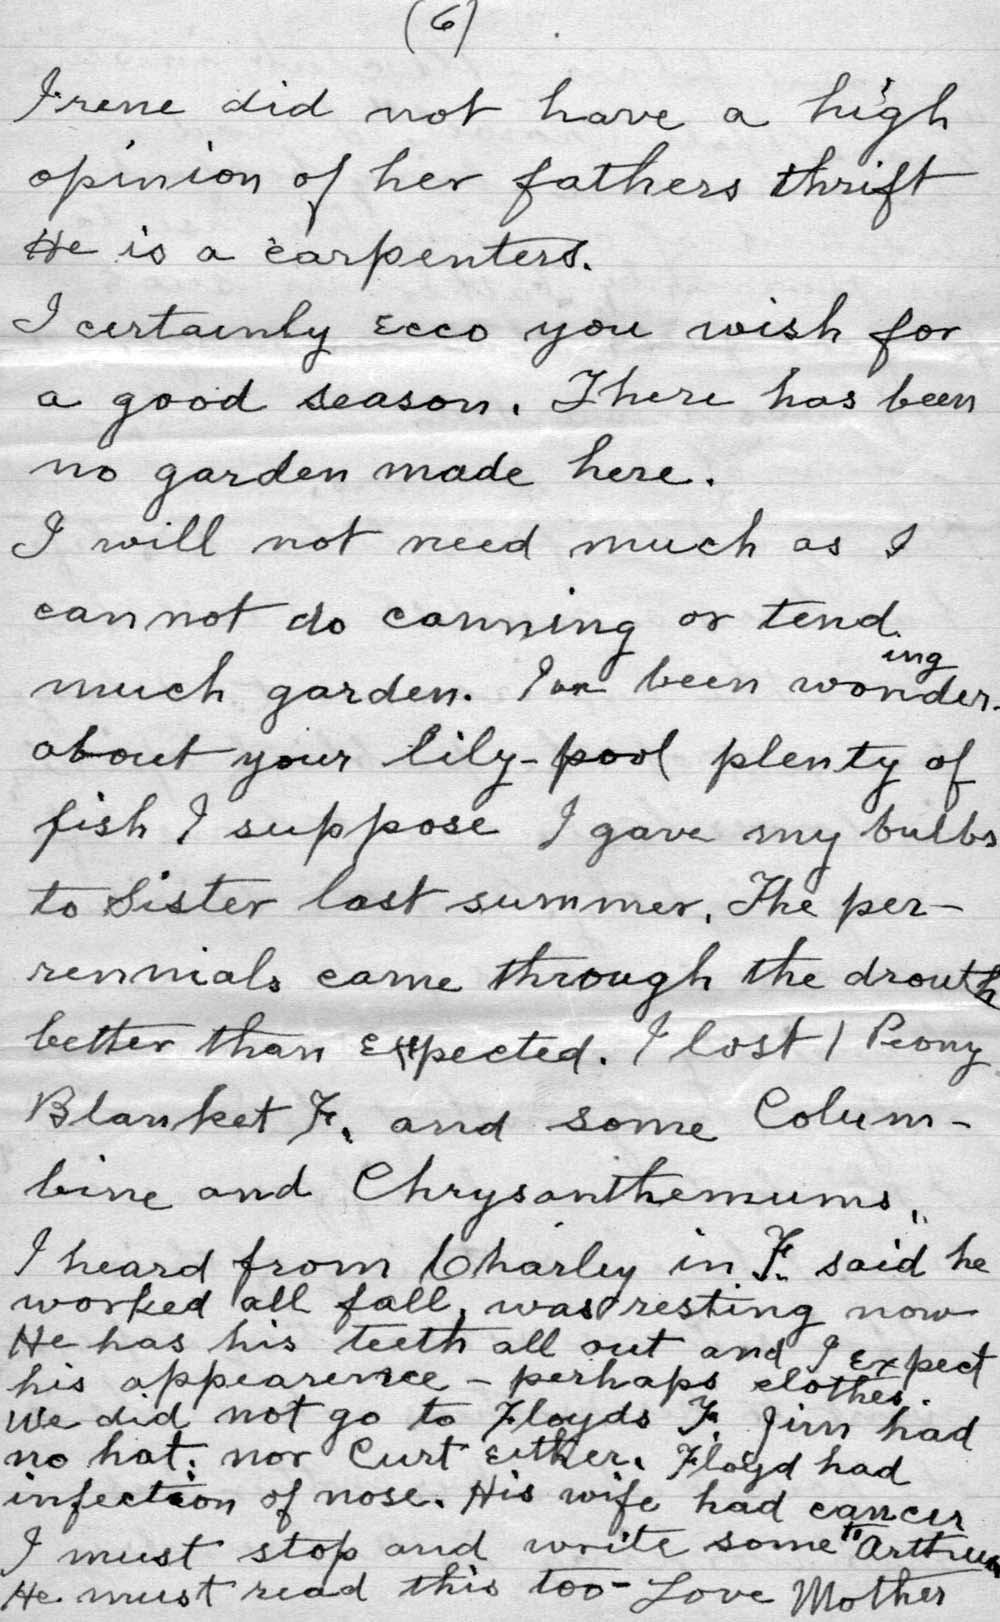 (6)
Irene did not have a high
opinion of her fathers thrift
He is a carpenters.
I certainly Ecco you wish for
a good season. There has been
no garden made here.
I will not need much as I
cannot do canning or tend
much garden. I been wonder-
ing
about your lily-pool plenty of
fish I suppose I gave my bulbs
to Sister last summer. The per-
rennials came through the drouth
better than Expected. I lost 1 Peony
Blanket F. and some Colum-
bine and Chrysanthemums.
I heard from Charley in F. said he
worked all fall, was resting now
He has his teeth all out and I Expect
his appearence - perhaps clothes.
We did not go to Floyds F. Jim had
no hat. nor Curt Either. Floyd had
infection of nose. His wife had cancer
I must stop and write some to Arthur
He must read this too - Love Mother